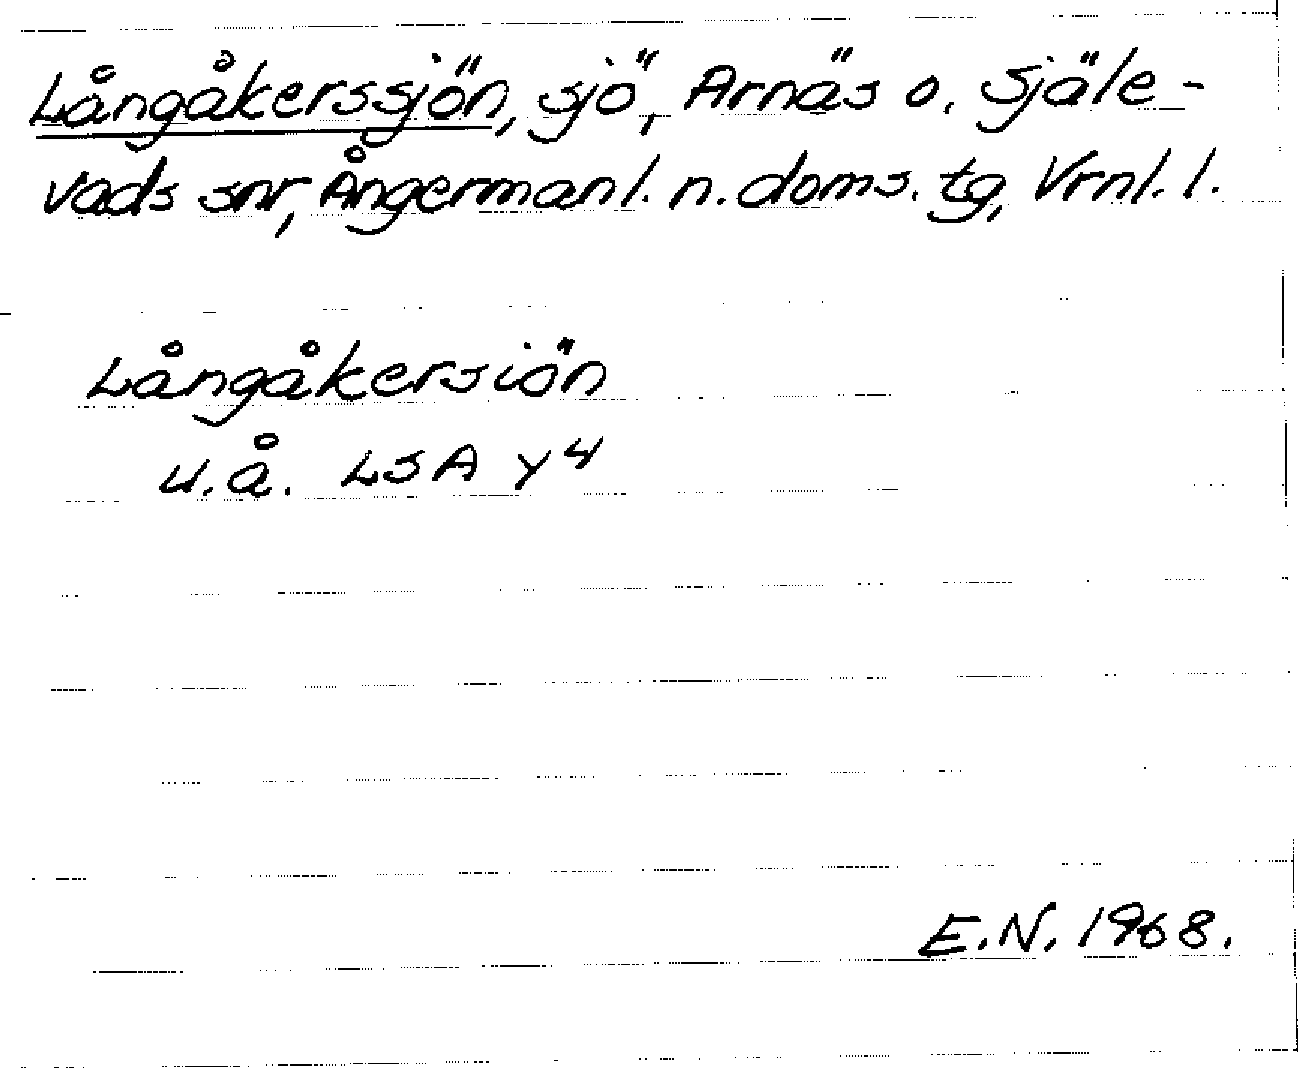 Långåkerssjön, sjö, Arnäs o. Själe-
vads snr, Ångermanl. n. doms. tg, Vrnl. l.
Långåkersiön
u.å. LSA Y4
E.N. 1968.